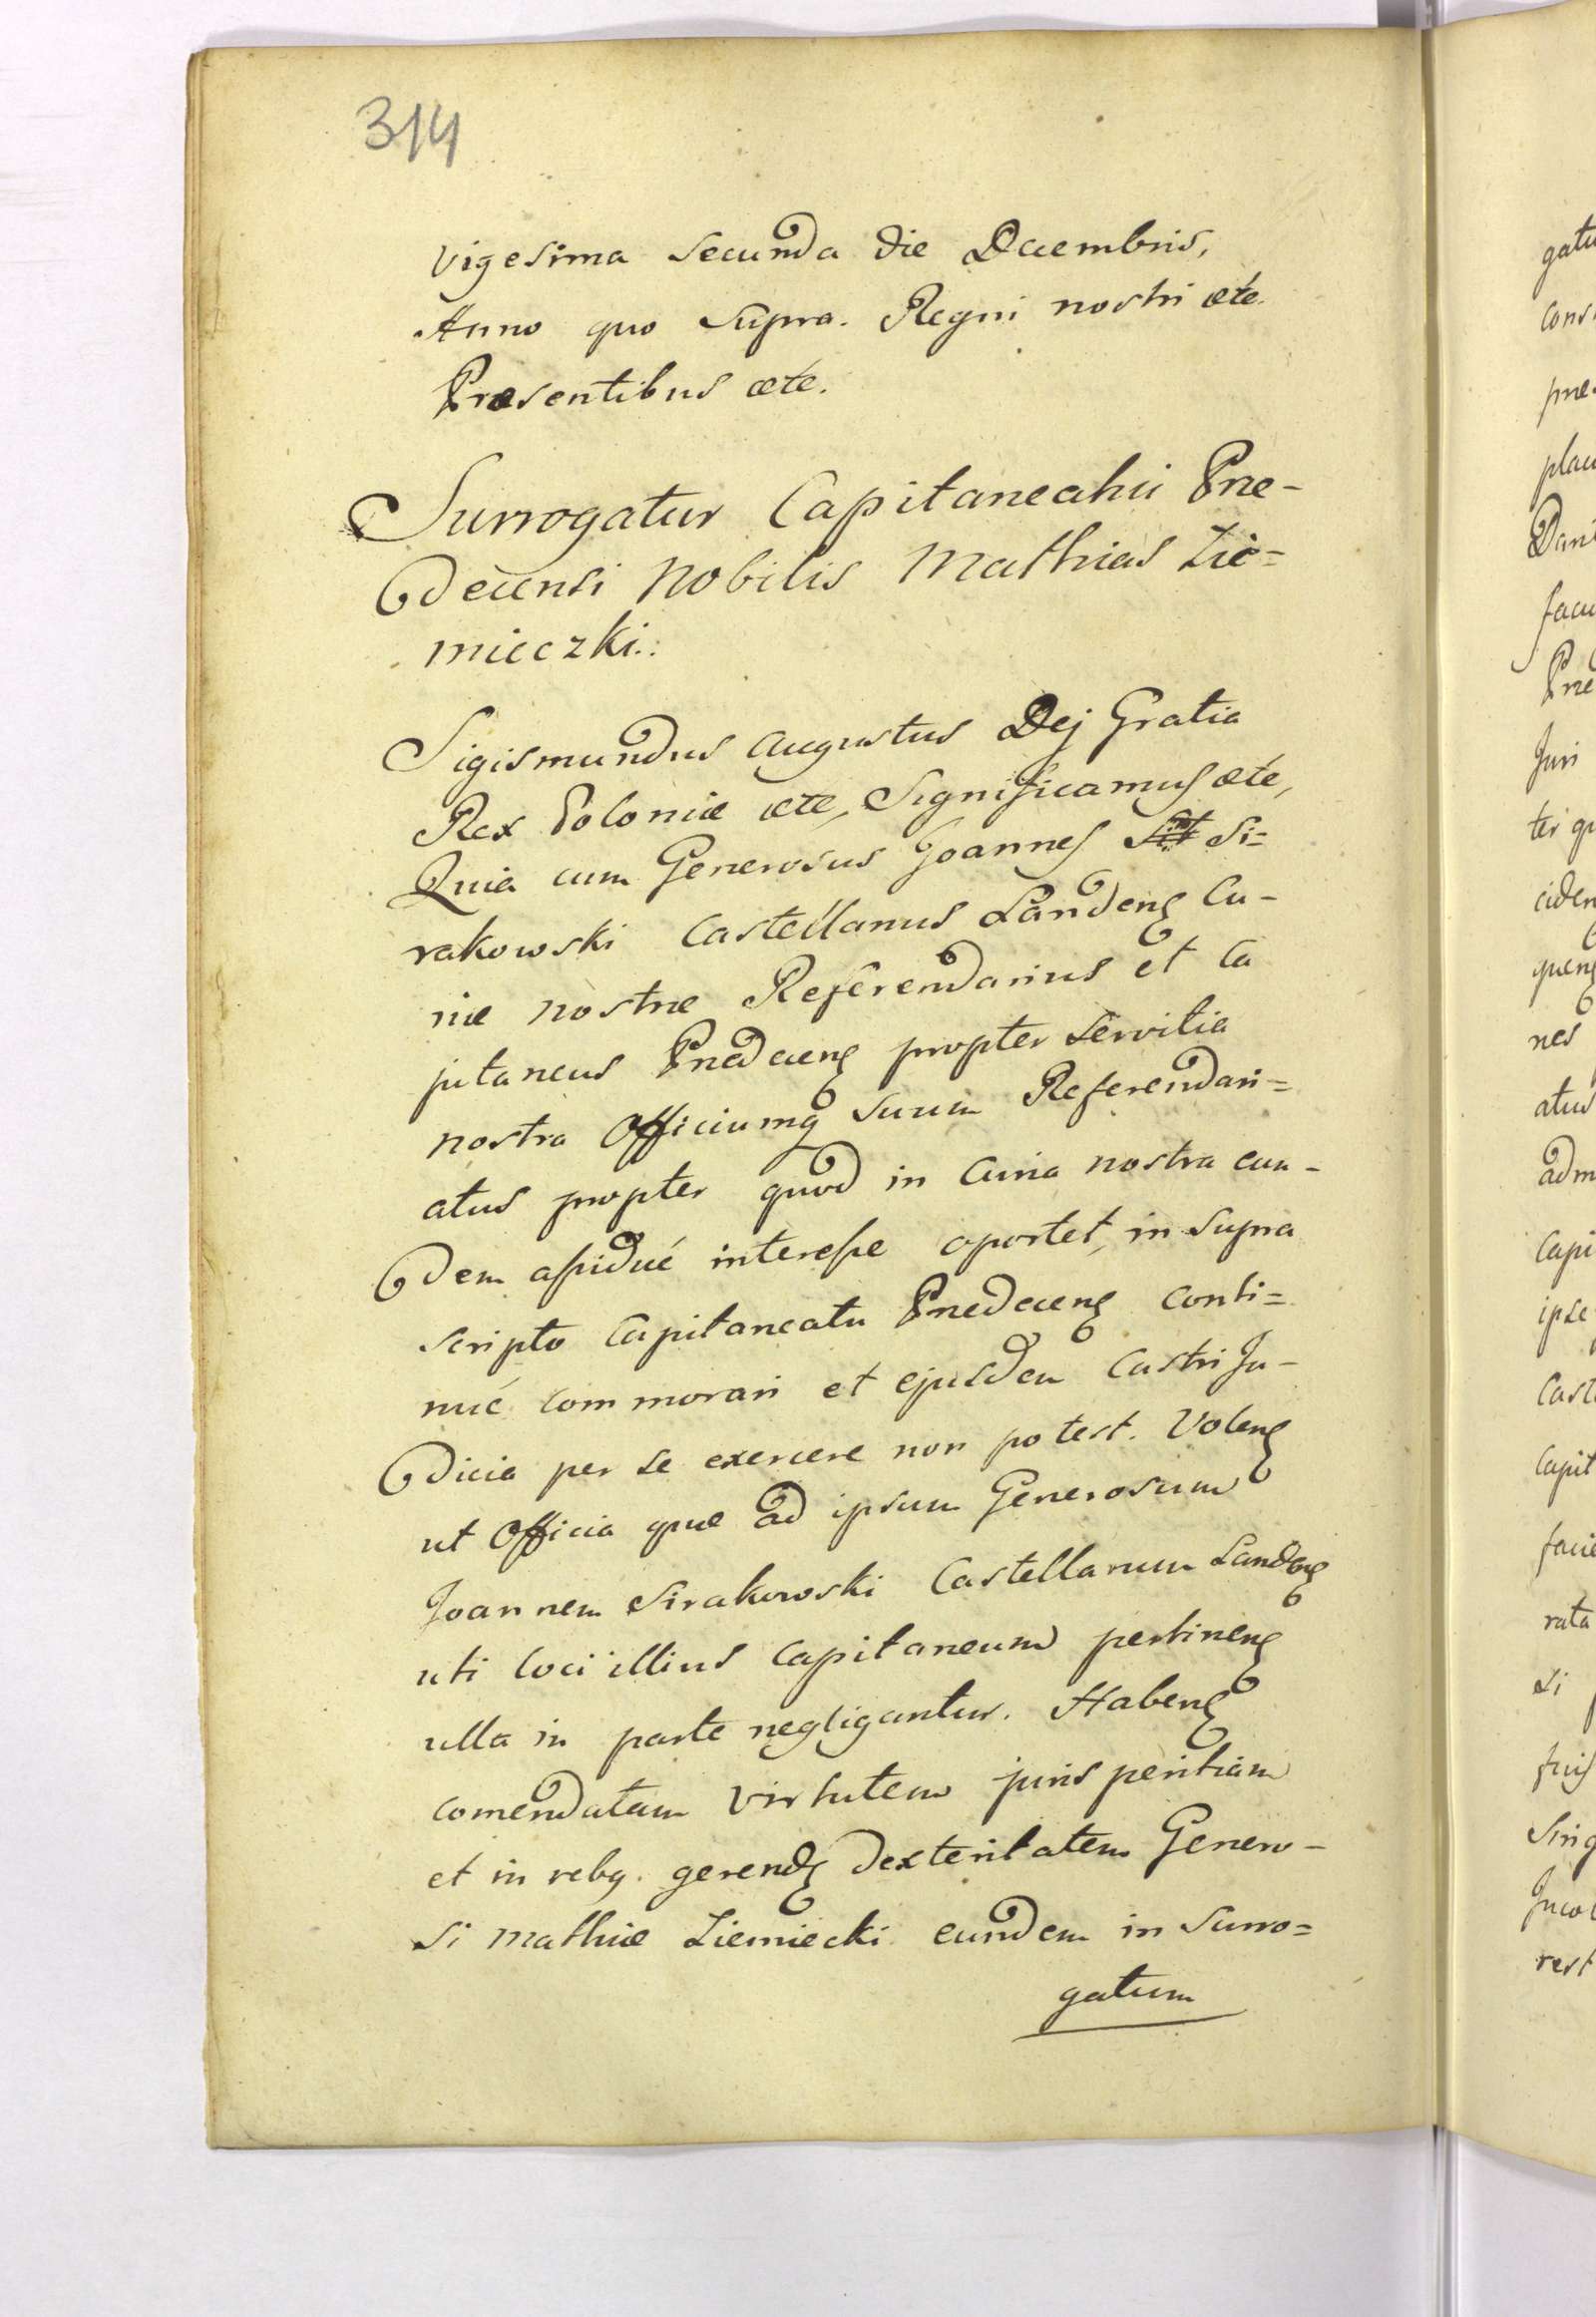 314
vigesima secunda die Decembris,
Anno quo supra. Regni nostri æte.
Præsentibus æte.
Surrogatur Capitaneatui Præ-
decensi Nobilis Mathias Zie=
mieczki.
Sigismundus Augustus Dej Gratia
Rex Poloniæ æte, Significamus æte,
Quia cum Generosus Joannes Si=
rakowski Castellanus Landenꝫ Cu-
riæ nostræ Referendarius et Ca
pitaneus Prædecenꝫ propter servitia
nostra Officiumqꝫ suum Referendari=
atus propter quod in Curia nostra eun-
dem assidué interesse oportet, in supra
scripto Capitaneatu Prædecenꝫ conti=
nué commorari et ejusdem Castri Ju-
dicia per se exercere non potest. Volenꝫ
ut Officia quæ ad ipsum Generosum
Joannem Sirakowski Castellanum Landenꝫ
uti loci illius Capitaneum pertinenꝫ
ulla in parte negligantur. Habenꝫ
comendatam virtutem juris peritiam
et in rebq. gerendꝫ dexteritatem Genero-
si Mathiæ Ziemiecki eundem in Surro=
gatum
gatu
plac
Dant
facu
Præ
Juri
ter qu
ciden
quenꝫ
nes
atus
adm
Capi
ipse
Cast
Capit
facie
rata
si
Sing
rest